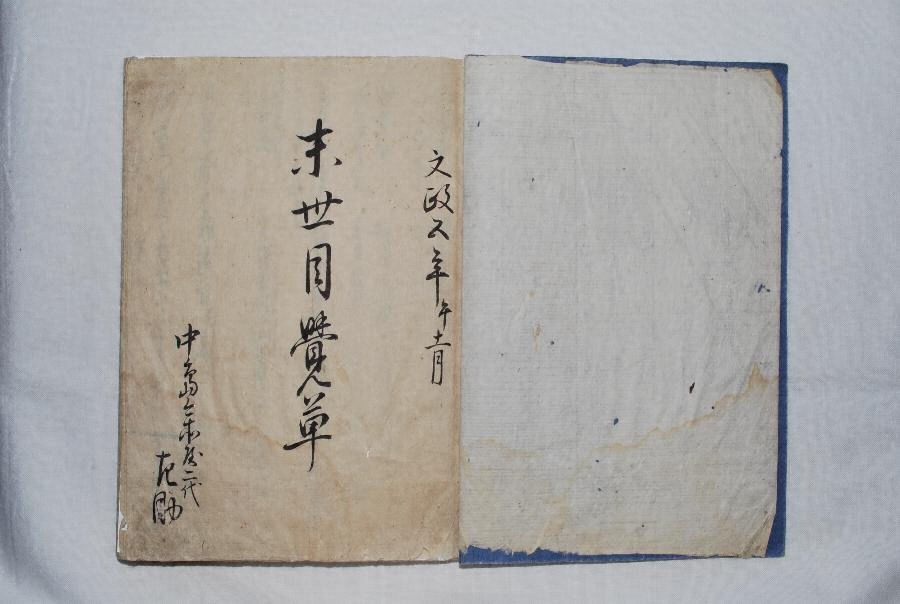 文政五年午十一月
末世目覺草
中島屋二代
左助